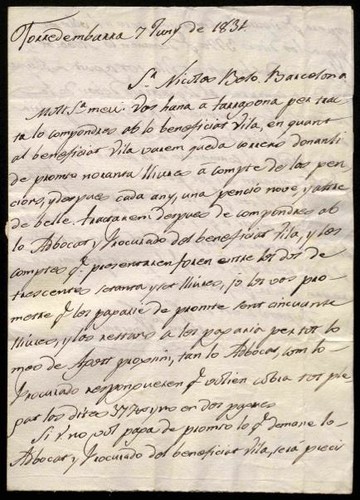 Torredembarra 7 Juny de 1831
Sr. Nicolas Boto Barcelona
Molt Sr. meu: vos hana a tarragona per trac
ta lo compondres ab lo beneficiat Vila, en quant
al beneficiat Vila varem queda donanli
de promte noranta lliures a compte de las pen
cions, y despues cada any, una penció nova y altre
de bella. tractarem despues de compondres ab
lo Adbocat y Procurado del beneficiat Vila, y los
comptes q. presentaren foren entre los dos de
trescentes setanta y set lliures, jo los vos pro
metre q. los pagaria de promte sent cincuante
lliures, y las restans a los pagaria per tot lo
mes de Agost proxim, tan lo Adbocat, com lo
Procurado respongueren q. volien cobra tot pe
gar los dites 377 y no en dos pagues
Si v no vol paga de promte lo q. demane lo
Adbocat y Procurado del beneficiat Vila, será precis